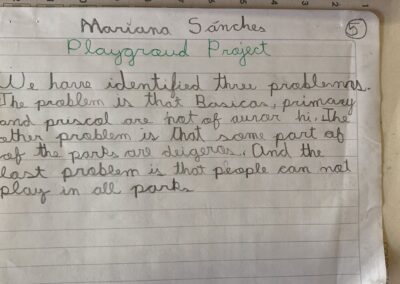 Mariana Sánches
5
Playgroud Project
We have identified three problems.
The problem is that Basicas, primary
and priscol are not of hi. The
other problem is that some part of
of the parks are deigeros. And the
last problem is that people can not
play in all parks